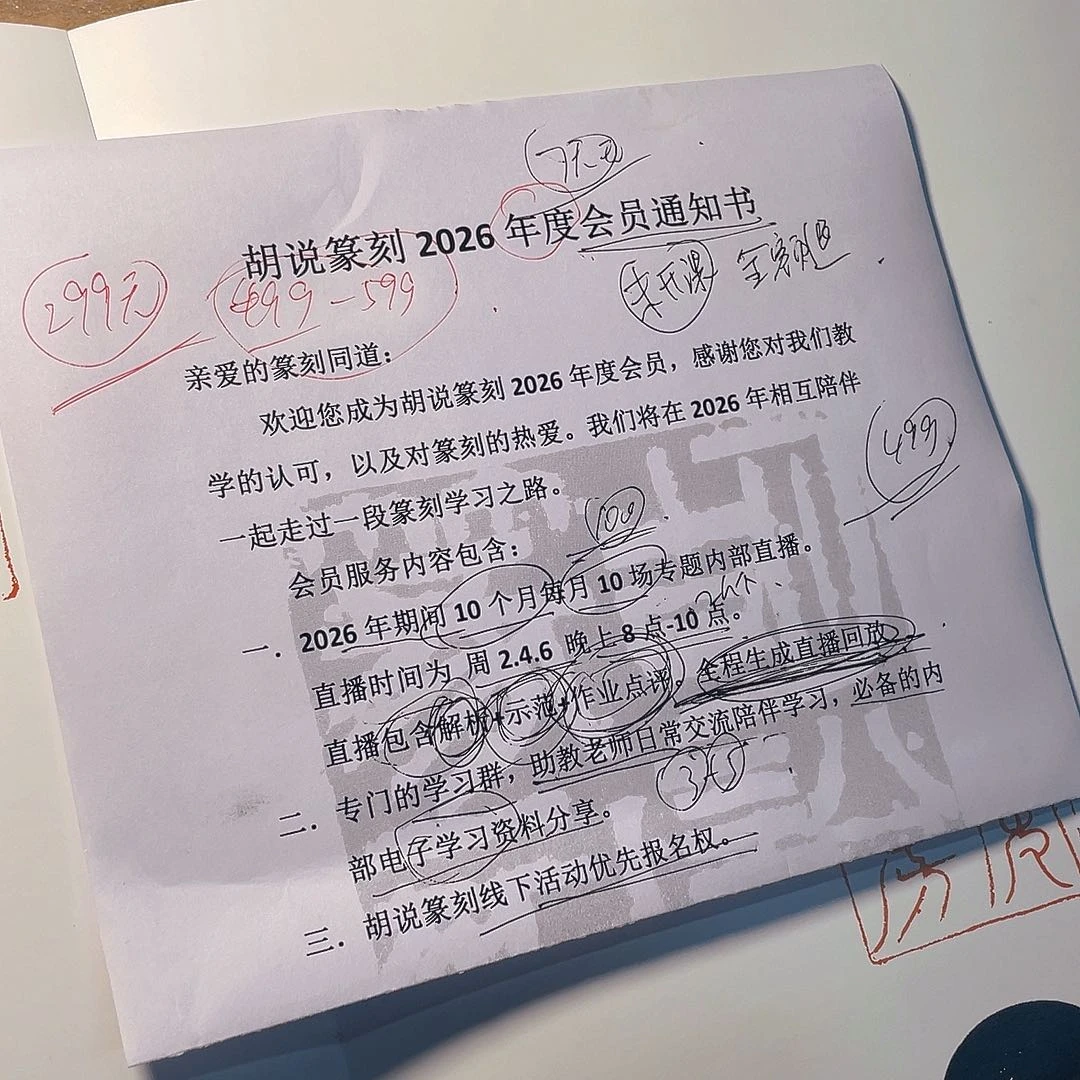 胡说篆刻 2026 年度会员通知书
299元
499-599
亲爱的篆刻同道：
欢迎您成为胡说篆刻 2026 年度会员，感谢您对我们教
学的认可，以及对篆刻的热爱。我们将在 2026 年相互陪伴
499
一起走过一段篆刻学习之路。
100
会员服务内容包含：
一．2026 年期间 10 个月每月 10 场专题内部直播。
直播时间为 周 2.4.6 晚上 8 点-10 点。
直播包含解析+示范+作业点评。全程生成直播回放
二．专门的学习群，助教老师日常交流陪伴学习，必备的内
365
部电子学习资料分享。
三．胡说篆刻线下活动优先报名权。